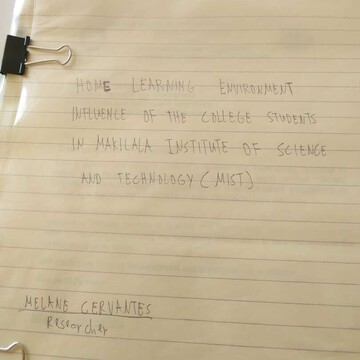 HOME LEARNING ENVIRONMENT
INFLUENCE OF THE COLLEGE STUDENTS
IN MAKILALA INSTITUTE OF SCIENCE
AND TECHNOLOGY (MIST)
MELANE CERVANTES
Researcher